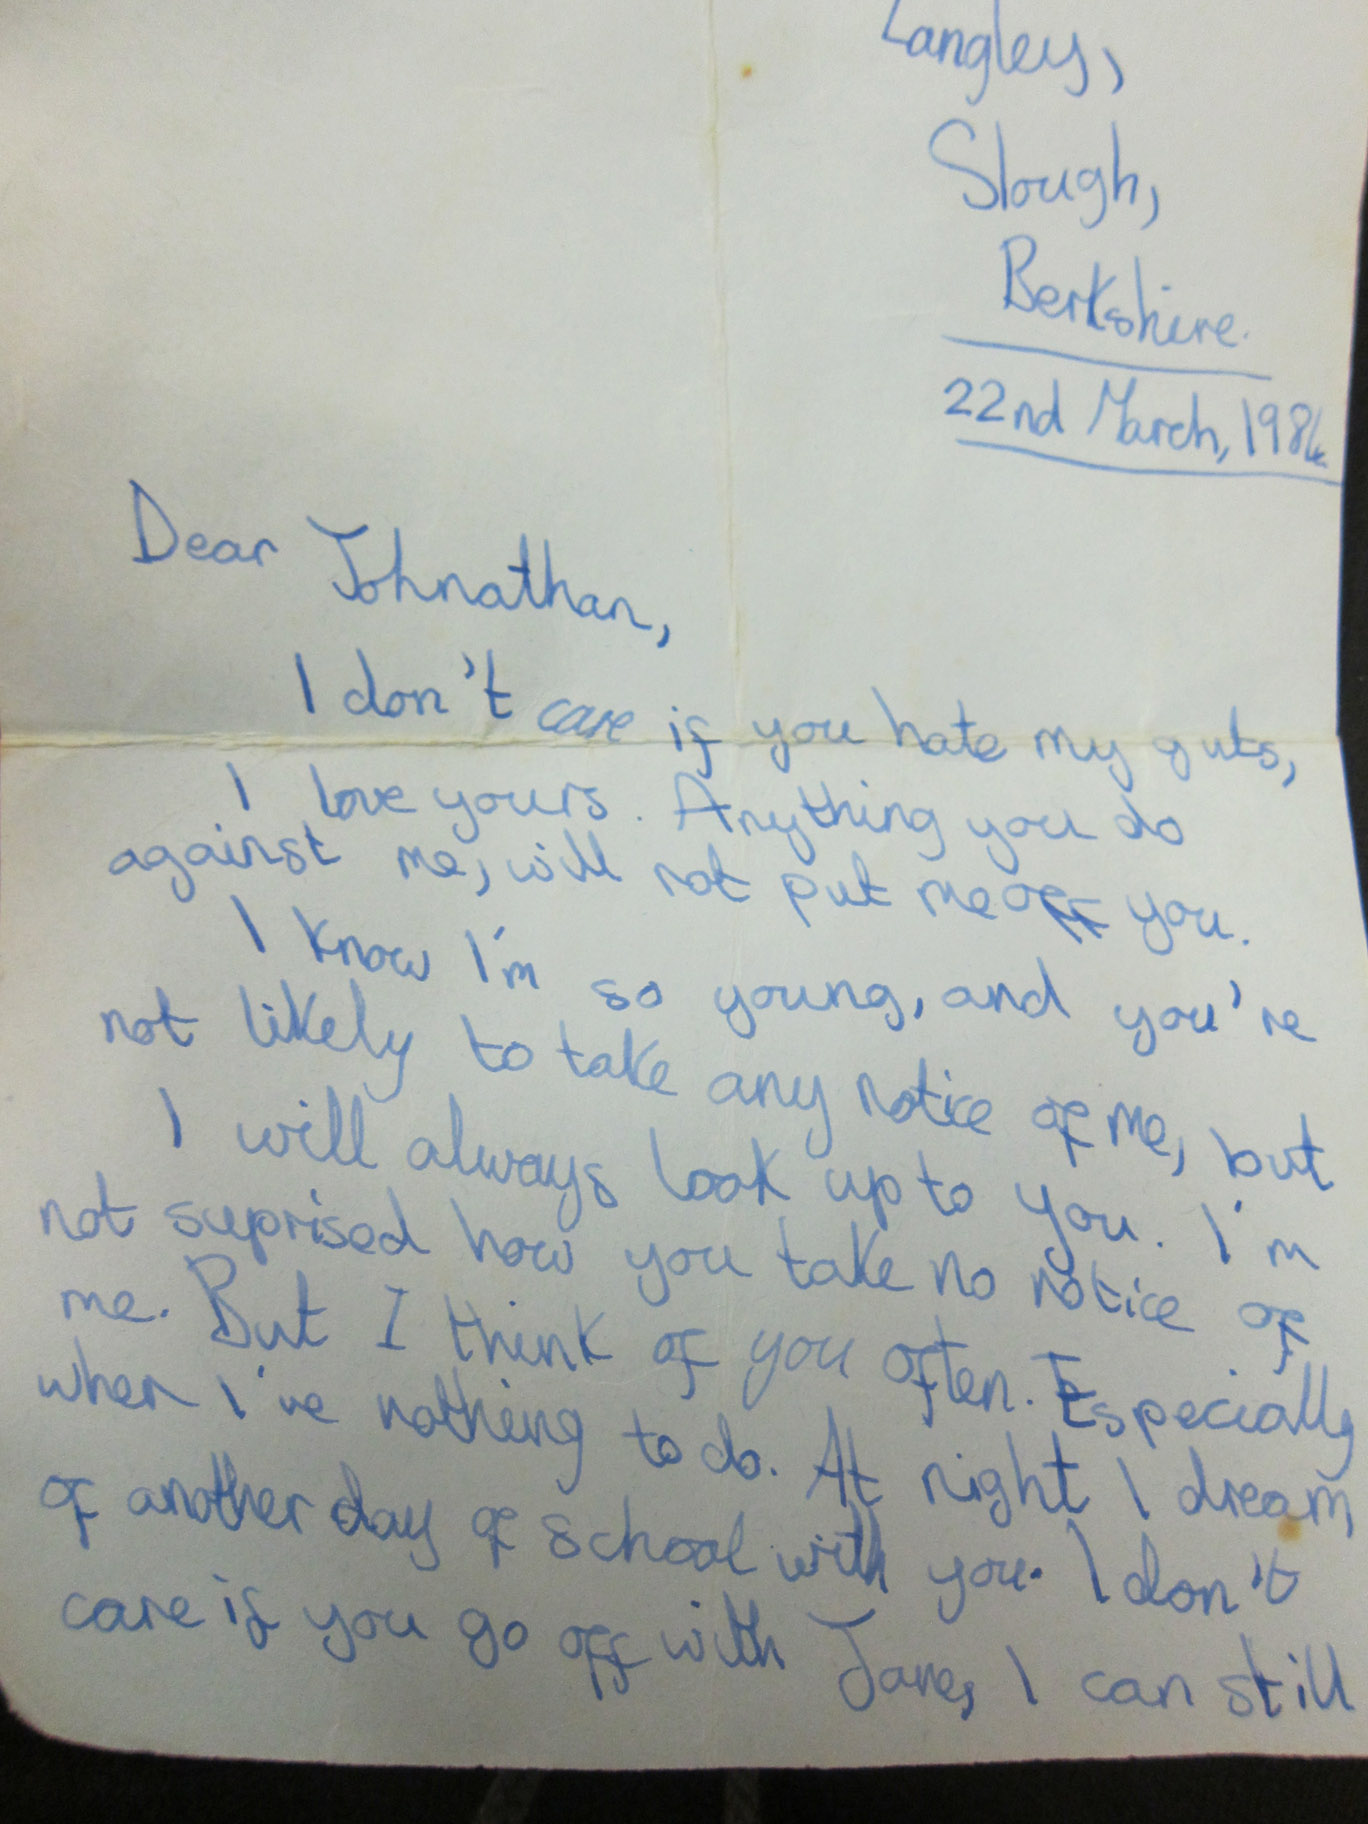 Langley,
Slough,
Berkshire.
22nd March,
Dear Johnathan,
I don't care if you hate my guts,
I love yours. Anything you do
against me, will not put me off you.
I know I'm so young, and you're
not likely to take any notice of me, but
I will always look up to you. I'm
not suprised how you take no notice of
me. But I think of you often. Especially
when I've nothing to do. At night I dream
of another day of school with you. I don't
care if you go off with Jane, I can still